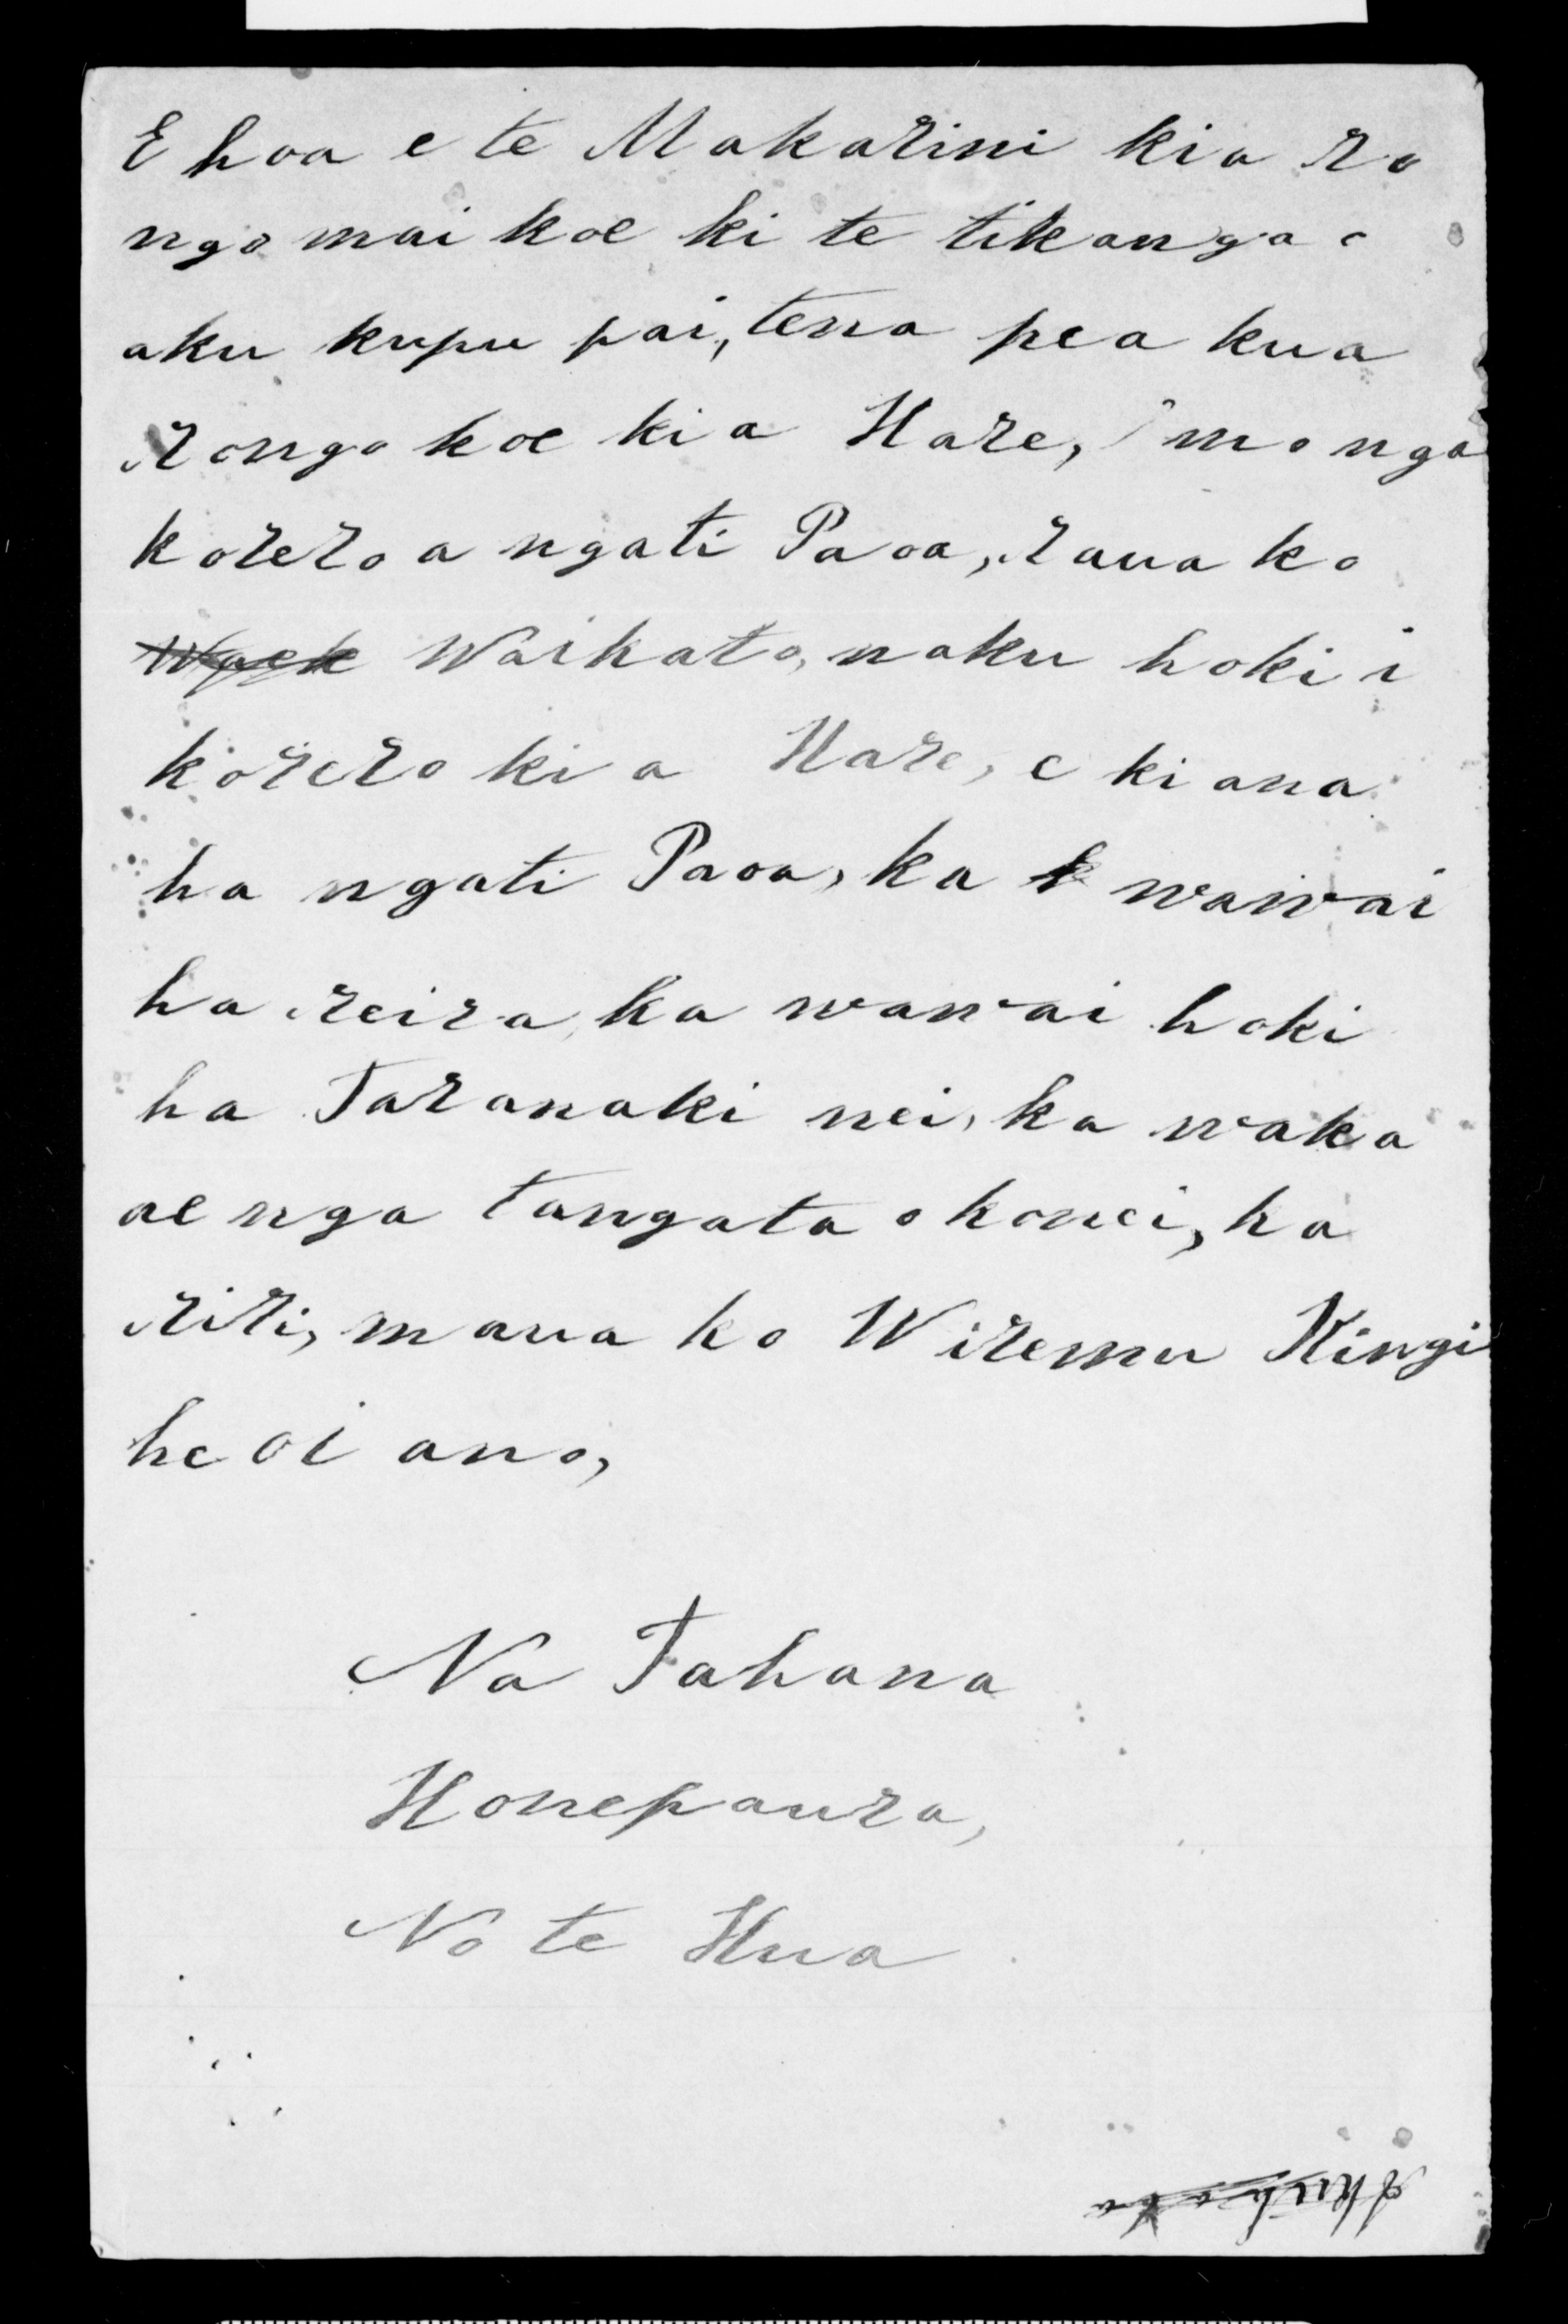 E hoa e te Makarini kia ro
ngo mai koe ki te tikanga o
aku kupu pai, tena pea kua
rongo koe kia Hare, mo nga
korero a ngati Paoa, raua ko
Waikato, naku hoki i
korero kia Hare, e ki ana
ha ngati Paoa, ka wawai
ha reira, ka wawai hoki
ha Taranaki nei, ka waka
ae nga tangata o konei, ka
riri, maua ko Wiremu Kingi
he oi ano,
Na Tahana
Honepaura,
No te Hua